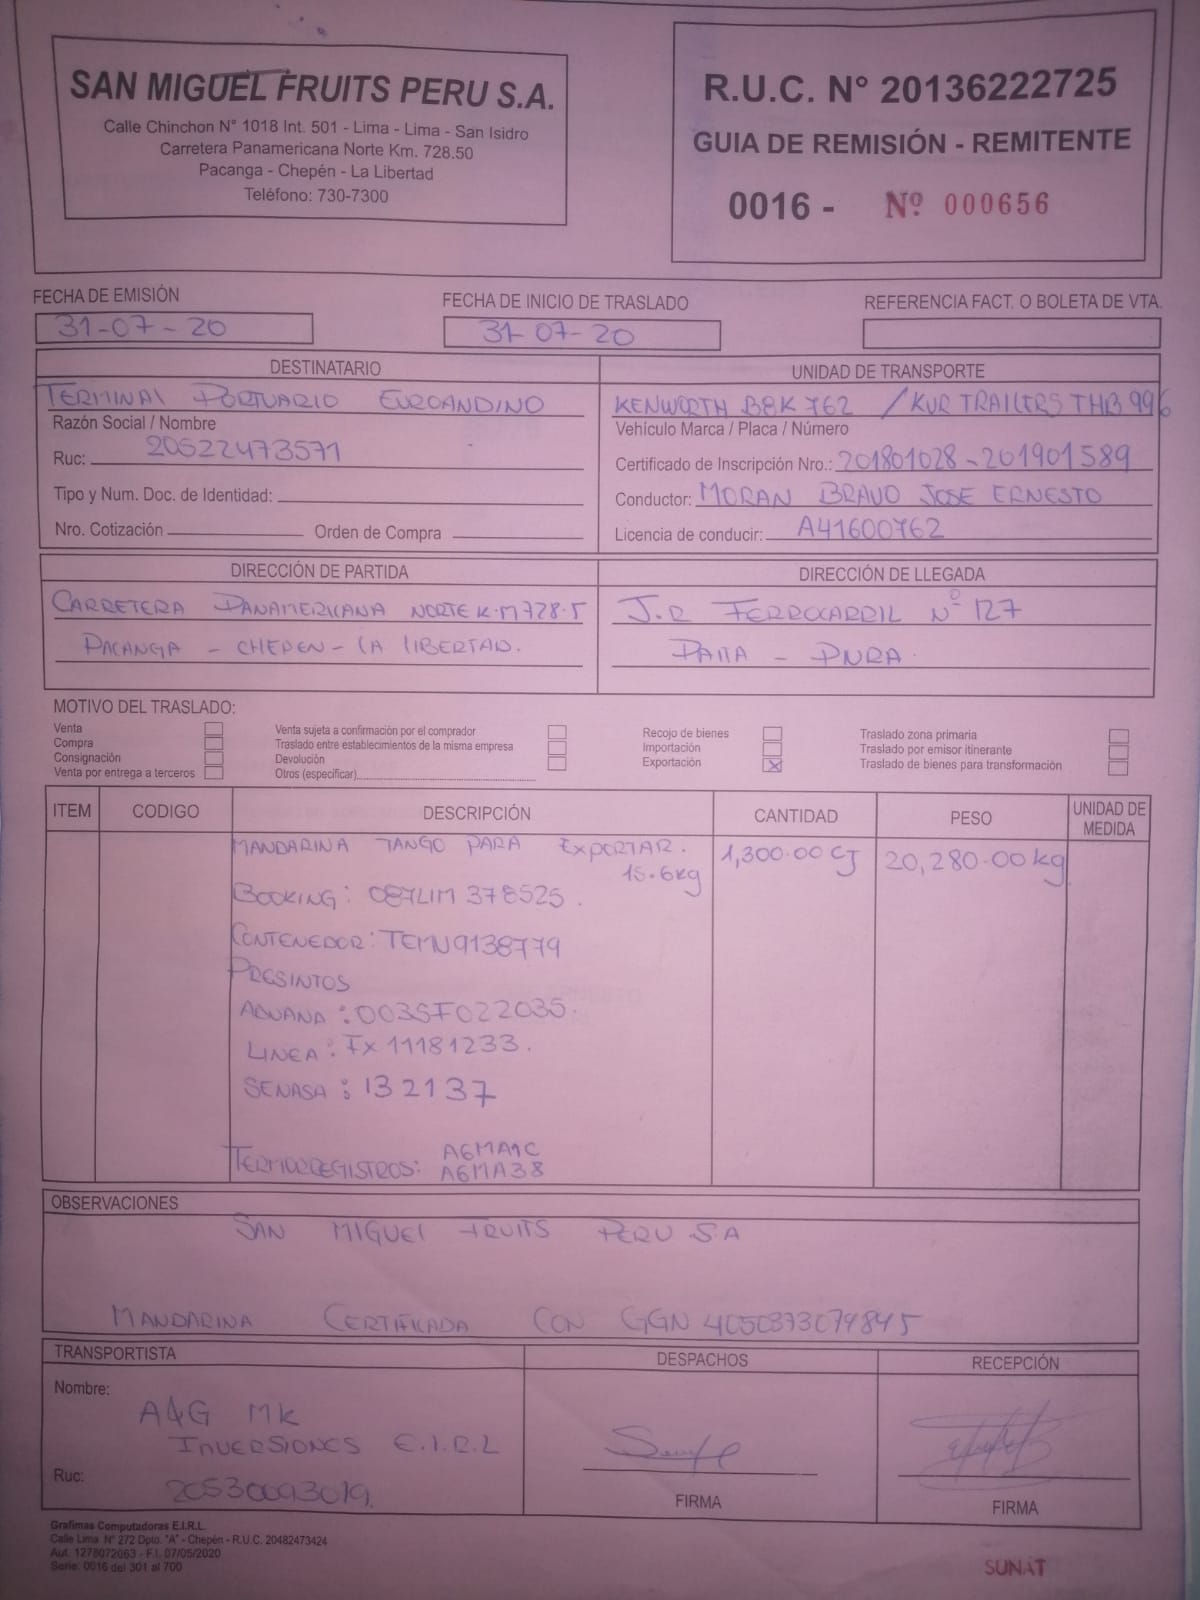 SAN MIGUEL FRUITS PERU S.A.
Calle Chinchon N° 1018 Int. 501 - Lima - Lima - San Isidro
Carretera Panamericana Norte Km. 728.50
Pacanga - Chepén - La Libertad
Teléfono: 730-7300
R.U.C. N° 20136222725
GUIA DE REMISIÓN - REMITENTE
0016 - Nº 000656
FECHA DE EMISIÓN
31-07-20
FECHA DE INICIO DE TRASLADO
31-07-20
REFERENCIA FACT. O BOLETA DE VTA.
DESTINATARIO
TERMINAL PORTUARIO EUROANDINO
Razón Social / Nombre
Ruc: 20522473571
Tipo y Num. Doc. de Identidad:
Nro. Cotización Orden de Compra
UNIDAD DE TRANSPORTE
KENWORTH B8K 762 / KUR TRAILERS THB 996
Vehículo Marca / Placa / Número
Certificado de Inscripción Nro.: 201801028-201901589
Conductor: MORAN BRAVO JOSE ERNESTO
Licencia de conducir: A41600762
DIRECCIÓN DE PARTIDA
CARRETERA PANAMERICANA NORTE K.M728.5
PACANGA - CHEPEN - LA LIBERTAD.
DIRECCIÓN DE LLEGADA
J.R FERROCARRIL Nº 127
PAITA - PIURA.
MOTIVO DEL TRASLADO:
Venta
Compra
Consignación
Venta por entrega a terceros
Venta sujeta a confirmación por el comprador
Traslado entre establecimientos de la misma empresa
Devolución
Otros (especificar)
Recojo de bienes
Importación
Exportación X
Traslado zona primaria
Traslado por emisor itinerante
Traslado de bienes para transformación
ITEM CODIGO DESCRIPCIÓN CANTIDAD PESO UNIDAD DE MEDIDA
MANDARINA TANGO PARA EXPORTAR. 1,300.00 CJ 20,280.00 kg
15.6kg
BOOKING: 087LIM 378525.
CONTENEDOR: TEMU9138779
PRESINTOS
ADUANA: 003SF022035.
LINEA: FX11181233.
SENASA: 132137
TERMORREGISTROS: A6MA1C
A6MA38
OBSERVACIONES
SAN MIGUEL FRUITS PERU S.A
MANDARINA CERTIFICADA CON GGN 4050373079845
TRANSPORTISTA
Nombre:
A&G MK
INVERSIONES E.I.R.L
Ruc: 20530093019.
DESPACHOS
FIRMA
RECEPCIÓN
FIRMA
Grafimas Computadoras E.I.R.L.
Calle Lima N° 272 Dpto. "A" - Chepén - R.U.C. 20482473424
Aut. 1278072063 - F.I. 07/05/2020
Serie: 0016 del 301 al 700
SUNAT